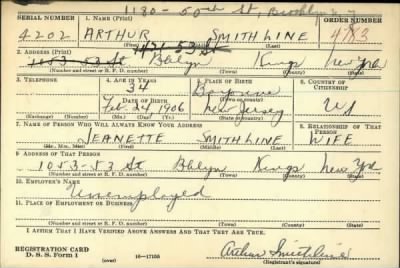 1180 - 50th St, Brooklyn
SERIAL NUMBER 1. NAME (Print) ORDER NUMBER
4202 ARTHUR SMITHLINE 4783
(First) (Middle) (Last)
2. ADDRESS (Print) 53 St
1053-53 St Bklyn Kings New York
(Number and street or R. F. D. number) (Town) (County) (State)
3. TELEPHONE 4. AGE IN YEARS 5. PLACE OF BIRTH 6. COUNTRY OF CITIZENSHIP
34 Bayonne
DATE OF BIRTH (Town or county)
Feb 24 1906 New Jersey US
(Exchange) (Number) (Mo.) (Day) (Yr.) (State or country)
7. NAME OF PERSON WHO WILL ALWAYS KNOW YOUR ADDRESS 8. RELATIONSHIP OF THAT PERSON
JEANETTE SMITHLINE WIFE
(Mr., Mrs., Miss) (First) (Middle) (Last)
9. ADDRESS OF THAT PERSON
1053-53 St Bklyn Kings New York
(Number and street or R. F. D. number) (Town) (County) (State)
10. EMPLOYER'S NAME
Unemployed
11. PLACE OF EMPLOYMENT OR BUSINESS
(Number and street or R. F. D. number) (Town) (County) (State)
I AFFIRM THAT I HAVE VERIFIED ABOVE ANSWERS AND THAT THEY ARE TRUE.
REGISTRATION CARD
D. S. S. Form 1 (over) 16-17105 Arthur Smithline
(Registrant's signature)